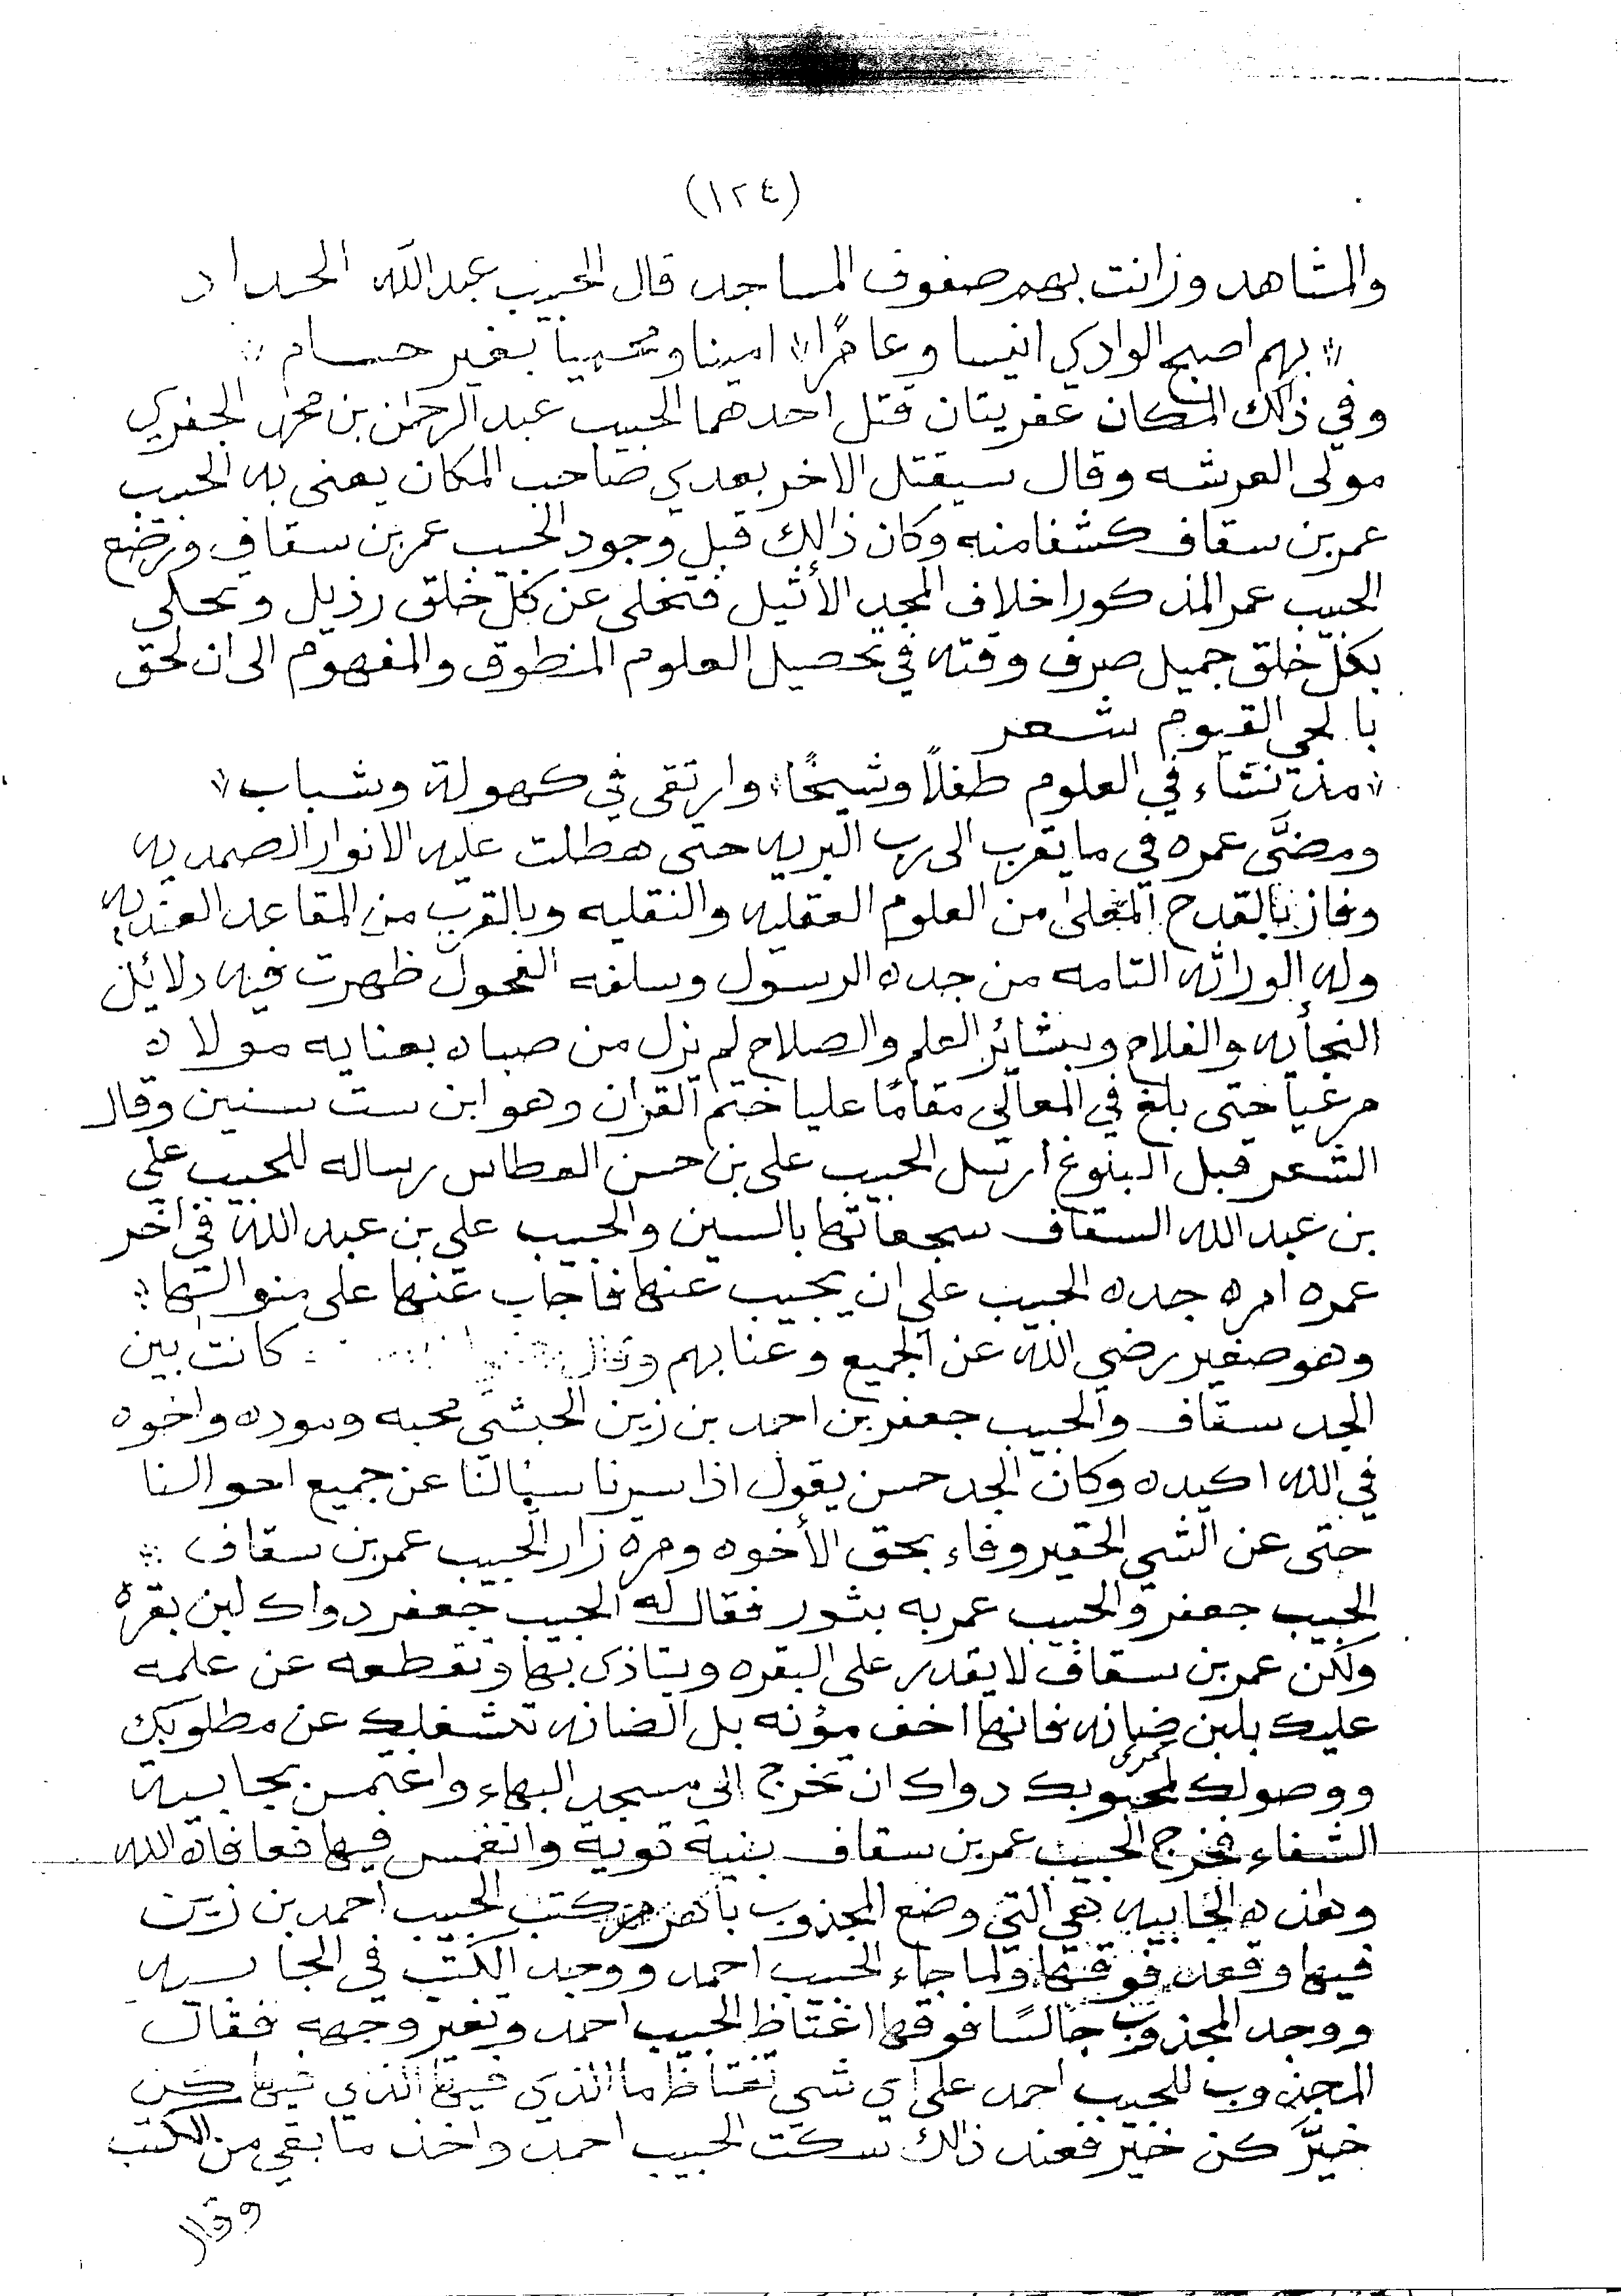 (١٢٤)
والمشاهد وزانت بهم صفوف المساجد قال الحبيب عبد الله الحداد
بهم اصبح الوادي انيسا وعامرًا امينا ومحميا بغير حسام
وفي ذالك المكان عفريتان قتل احدهما الحبيب عبد الرحمن بن محمد الجفري
مولى العرشه وقال سيقتل الاخر بعدي صاحب المكان يعني به الحبيب
عمر بن سقاف كشفا منه وكان ذالك قبل وجود الحبيب عمر بن سقاف ورضع
الحبيب عمر المذكور اخلاف المجد الأثيل فتخلى عن كل خلق رذيل وتحلى
بكل خلق جميل صرف وقته في تحصيل العلوم المنطوق والمفهوم الى ان لحق
بالحي القيوم شعر
مذ نشاء في العلوم طفلاً وشيخًا وارتقى في كهولة وشباب
ومضَّى عمره في ما يقرب الى رب البريه حتى هطلت عليه الانوار الصمديه
وفاز بالقدح المعلى من العلوم العقليه والنقليه وبالقرب من المقاعد العنديه
وله الوراثه التامه من جده الرسول وسلفه الفحول ظهرت فيه دلائل
النجابه والفلاح وبشائر العلم والصلاح لم يزل من صباه بعنايه مولاه
مرعيا حتى بلغ في المعالي مقامًا عليا ختم القران وهو ابن ست سنين وقال
الشعر قبل البلوغ ارسل الحبيب علي بن حسن العطاس رساله للحبيب علي
بن عبد الله السقاف سجعاتها بالسين والحبيب علي بن عبد الله في اخر
عمره امره جده الحبيب علي ان يجيب عنها فاجاب عنها على منوالها
وهو صغير رضي الله عن الجميع وعنا بهم وقال كانت بين
الجد سقاف والحبيب جعفر بن احمد بن زين الحبشي محبه وموده واخوه
في الله اكيده وكان الجد حسن يقول اذا سرنا سيالنا عن جميع احوالنا
حتى عن الشي الحقير وفاء بحق الأخوه ومره زار الحبيب عمر بن سقاف
الحبيب جعفر والحبيب عمر به بثور فقال له الحبيب جعفر دواك لبن بقره
ولكن عمر بن سقاف لا يقدر على البقره ويتاذى بها وتقطعه عن علمه
عليك بلبن ضانه فانها اخف مؤنه بل الضانه تشغلك عن مطلوبك
ووصولك لمحبوبك دواك ان تخرج الى مسجد البهاء واغتمس بجابية
الشفاء فخرج الحبيب عمر بن سقاف بنية قوية وانغمس فيها فعافاه الله
وهذه الجابيه هي التي وضع المجذوب باهرمز كتب الحبيب احمد بن زين
فيها وقعد فوقها ولما جاء الحبيب احمد ووجد الكتب في الجابيه
ووجد المجذوب جالسًا فوقها اغتاظ الحبيب احمد وتغير وجهه فقال
المجذوب للحبيب احمد على اي شي تغتاظ ما الذي فيها الذي فيها كن
خيَّر كن خيّر فعند ذالك سكت الحبيب احمد واخذ ما بقي من الكتب
وقال